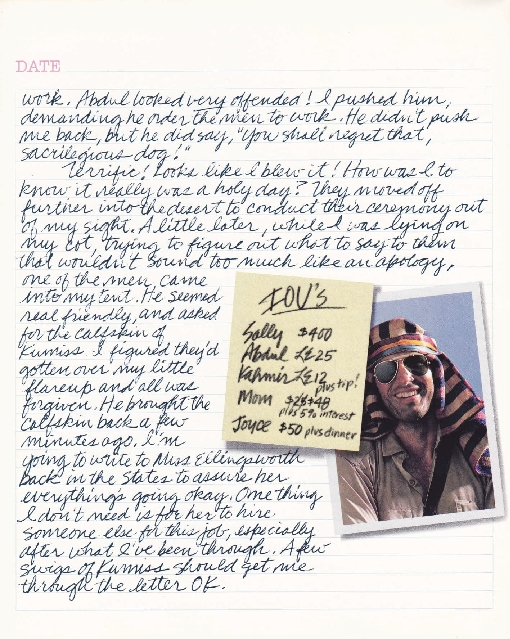 DATE
work. Abdul looked very offended! I pushed him,
demanding he order the men to work. He didn't push
me back, but he did say, "You shall regret that,
sacrilegious dog!"
Terrific! Looks like I blew it! How was I to
know it really was a holy day? They moved off
further into the desert to conduct their ceremony out
of my sight. A little later, while I was lying on
my cot, trying to figure out what to say to them
that wouldn't sound too much like an apology,
one of the men came
into my tent. He seemed
real friendly, and asked
for the calfskin of
Kumiss. I figured they'd
gotten over my little
flareup and all was
forgiven. He brought the
calfskin back a few
minutes ago. I'm
going to write to Miss Ellingsworth
back in the States to assure her
everything's going okay. One thing
I don't need is for her to hire
someone else for this job, especially
after what I've been through. A few
swigs of Kumiss should get me
through the letter OK.
IOU's
Sally $400
Abdul L£25
Kahmir L£12
plus tip!
Mom $25 $48
plus 5% interest
Joyce $50 plus dinner